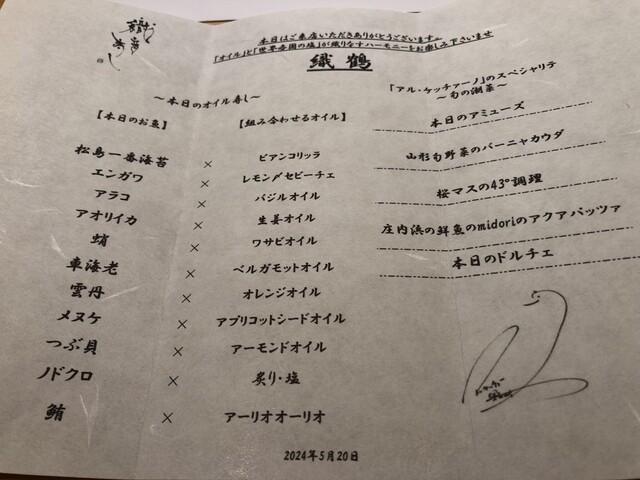 本日はご来店いただきありがとうございます。
「オイル」と「世界各国の塩」が織りなすハーモニーをお楽しみ下さいませ
織鶴
～本日のオイル寿し～
【本日のお魚】 【組み合わせるオイル】
松島一番海苔 × ビアンコリッラ
エンガワ × レモン〆セビーチェ
アラコ × バジルオイル
アオリイカ × 生姜オイル
蛸 × ワサビオイル
車海老 × ベルガモットオイル
雲丹 × オレンジオイル
メヌケ × アプリコットシードオイル
つぶ貝 × アーモンドオイル
ノドクロ × 炙り・塩
鮪 × アーリオオーリオ
「アル・ケッチァーノ」のスペシャリテ
～旬の潮菜～
本日のアミューズ
山形旬野菜のバーニャカウダ
桜マスの43°調理
庄内浜の鮮魚のmidoriのアクアパッツァ
本日のドルチェ
2024年5月20日